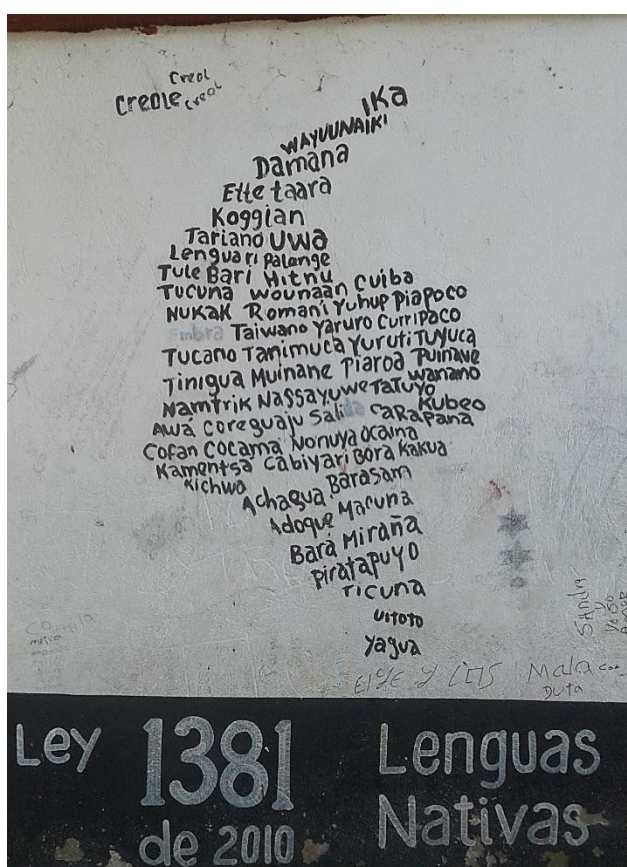 Creol
Creole Creol
Ika
WAYUUNAIKI
Damana
Ette taara
Koggian
Tariano Uwa
Lenguari Palenge
Tule Bari Hitnu
Tucuna Wounaan Cuiba
NUKAK Romani Yuhup Piapoco
Embra Taiwano Yaruro Curripaco
Tucano Tanimuca Yuruti Tuyuca
Tinigua Muinane Piaroa Puinave
Namtrik Nassayuwe Tatuyo Wanano
Awá Coreguaju Saliba Carapana Kubeo
Cofan Cocama Nonuya Ocaina
Kamentsa Cabiyari Bora Kakua
Kichwa
Achagua Barasam
Adoque Macuna
Bará Miraña
Piratapuyo
Ticuna
Uitoto
Yagua
Camila
Sandra
Mala
Duta
Ley 1381 de 2010
Lenguas Nativas